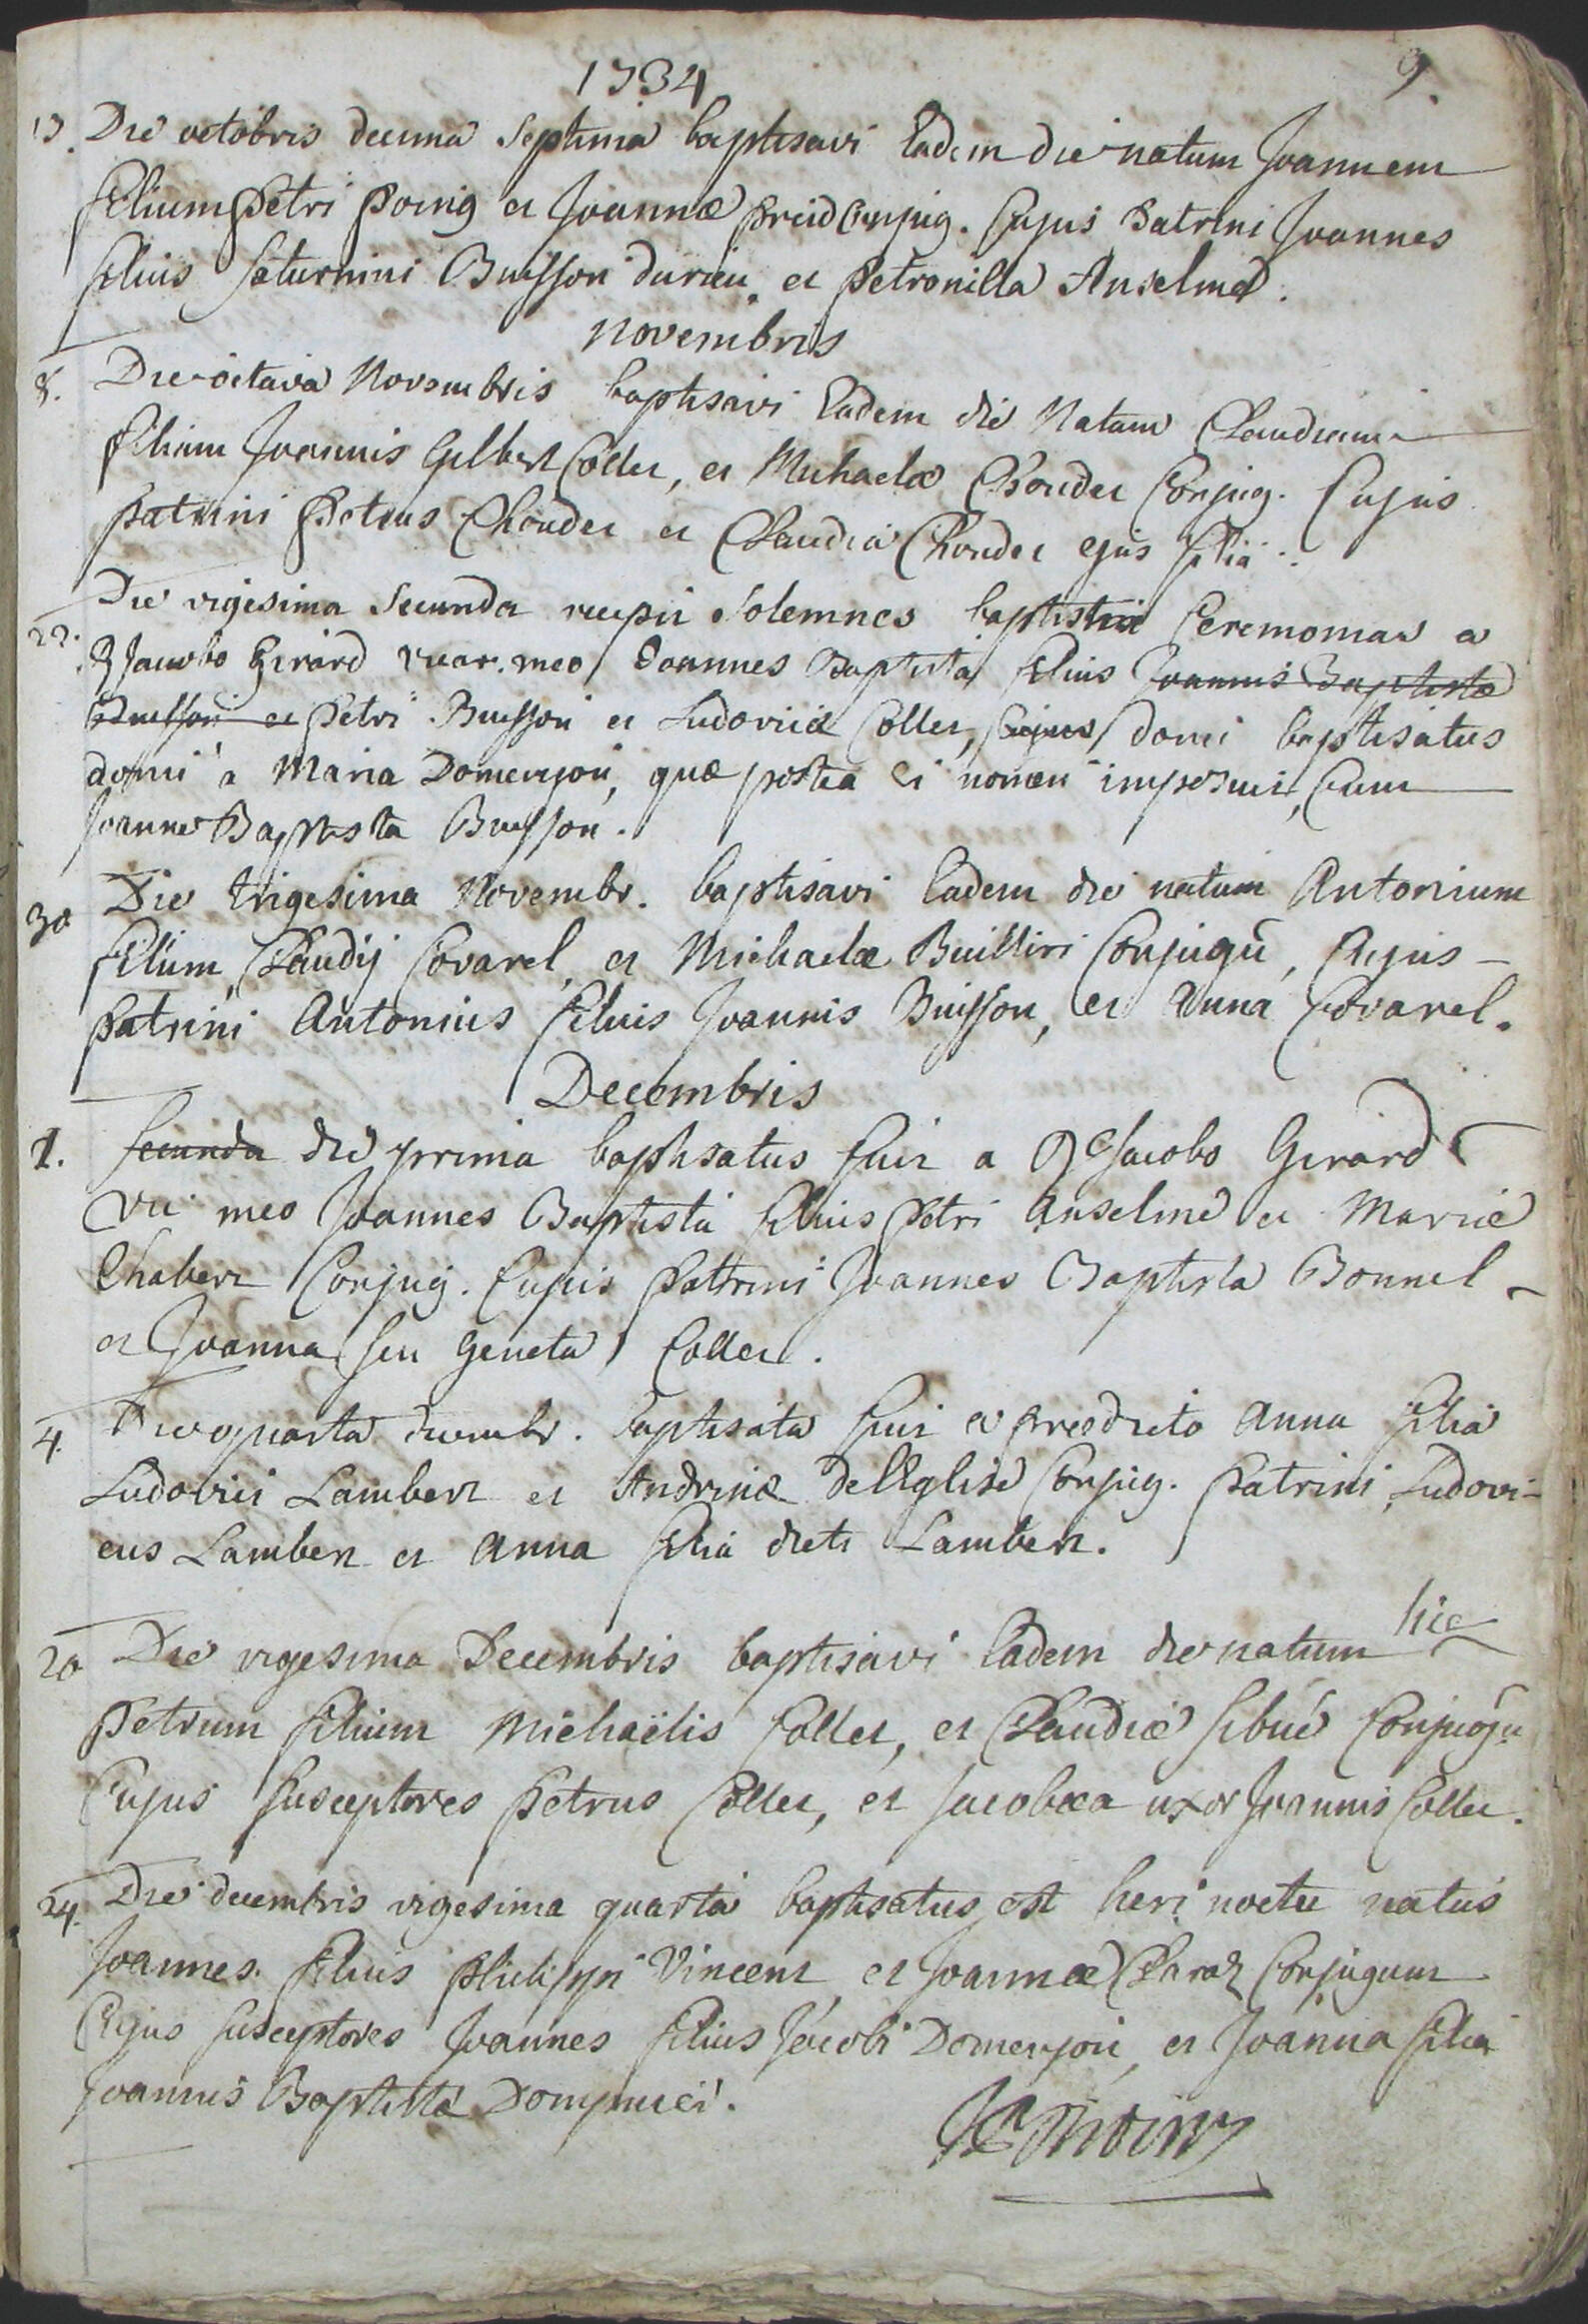 1734
9.
17. Die octobris decima Septima baptisavi Eadem die natum Joannem
filium Petri Poing et Joannæ Conjug. Cujus Patrini Joannes
filius Saturnini Buisson durieu, et Petronilla Anselme.
Novembris
8. Die octava Novembris baptisavi Eadem die Natam Claudiam
filiam Joannis Gilbert Collet, et Michaelæ Choudet Conjug. Cujus
Patrini Petrus Choudet et Claudia Choudet ejus filia.
22. Die vigesima Secunda recepit Solemnes Ceremonias a
Rdo Jacobo Girard vicar. meo Joannes Baptista filius Joannis Baptistæ
Buisson et Petri Buisson et Ludovicæ Collet, Cujus domi baptisatus
domi a Maria Domenjon, quæ postea Ei nomen imposuit, Cum
Joanne Baptista Buisson.
30 Die trigesima Novembr. baptisavi Eadem die natum Antonium
filium Claudij Covarel, et Michaelæ Conjugũ, Cujus
Patrini Antonius filius Joannis Buisson, et Anna Covarel.
Decembris
1. Secunda die prima baptisatus fuit a Rdo Jacobo Girard
vic meo Joannes Baptista filius Petri Anselme et Mariæ
Chabert Conjug. Cujus Patrini Joannes Baptista Bonnel
et Joanna seu Geneta Collet.
4. Die quarta decembr. baptisata fuit a prædicto Anna filia
Ludovici Lambert et Andreæ DelEglise Conjug. Patrini Ludovi-
cus Lambert et Anna filia dicti Lambert.
20 Die vigesima Decembris baptisavi Eadem die natum hic
Petrum filium Michaëlis Collet, et Claudiæ Sibué Conjugũ
Cujus Susceptores Petrus Collet, et Jacobæa uxor Joannis Collet.
24. Die decembris vigesima quarta baptisatus est heri noctu natus
Joannes filius Philippi Vincent et Joannæ Claraz Conjugum
Cujus Susceptores Joannes filius Jacobi Domenjon, et Joanna filia
Joannis Baptistæ Dompnier.